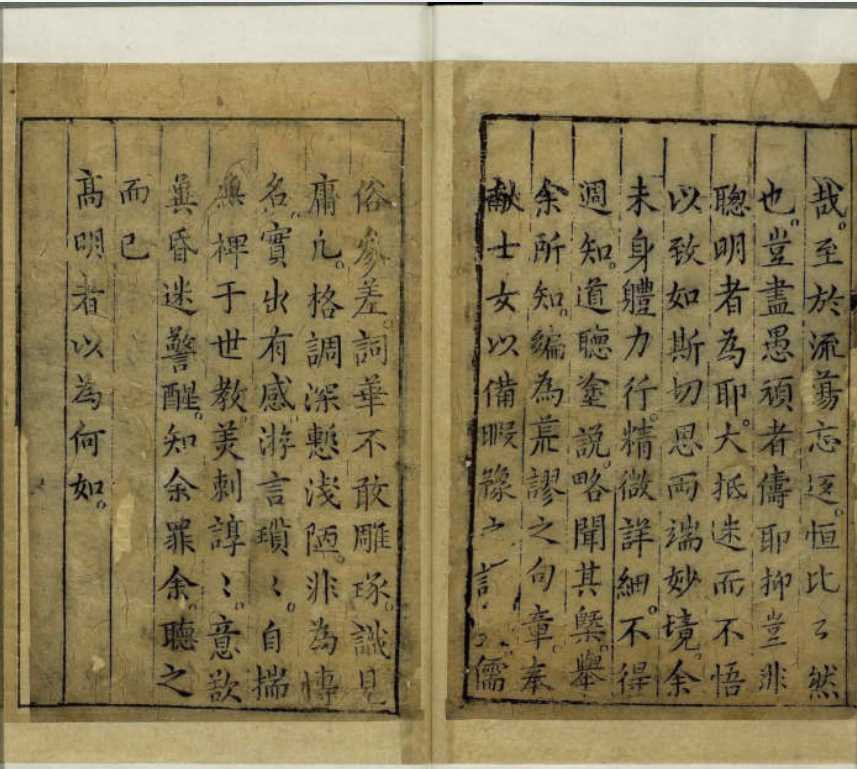 哉。至於流蕩忘返。恒比〻然
也。豈盡愚頑者儔耶抑豈非
聰明者為耶。大抵迷而不悟
以致如斯切思兩端妙境。余
未身軆力行。精微詳細。不得
週知。道聽塗說。略聞其槩。舉
余所知。編為荒謬之句章。奉
献士女以備暇豫之儒
俗參差。詞華不敢雕琢。識見
庸凢。格調深慙淺陋。非為慱
名。實出有感。游言瑣〻。自揣
無裨于世教。美刺諄〻。意欲
冀昏迷警醒。知余罪余。聽之
而已
高明者以為何如。